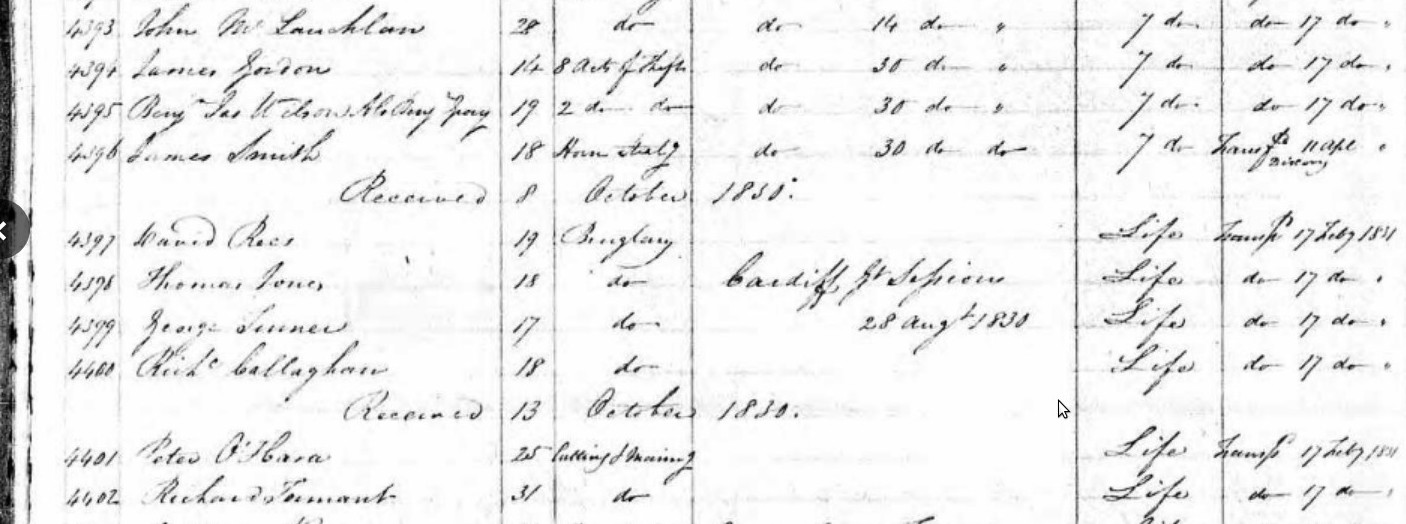 4393 John McLauchlan 28 do do 14 do " 7 do do 17 do "
4394 James Gordon 14 8 Acts of Theft do 30 do " 7 do do 17 do "
4395 Benjn Jas Wilson 19 2 do do do 30 do " 7 do do 17 do "
4396 James Smith 18 do 30 do do 7 do Transpd 11 Apl "
Received 8 October 1830.
4397 David Rees 19 Burglary Life Transpd 17 Feby 1831
4398 Thomas Jones 18 do Cardiff Gt Sessions Life do 17 do "
4399 George 17 do 28 Augt 1830 Life do 17 do "
4400 Richd Callaghan 18 do Life do 17 do "
Received 13 October 1830.
4401 Peter O'Hara 25 Cutting & Maiming Life Transpd 17 Feby 1831
4402 Richard Tennant 31 do Life do 17 do "